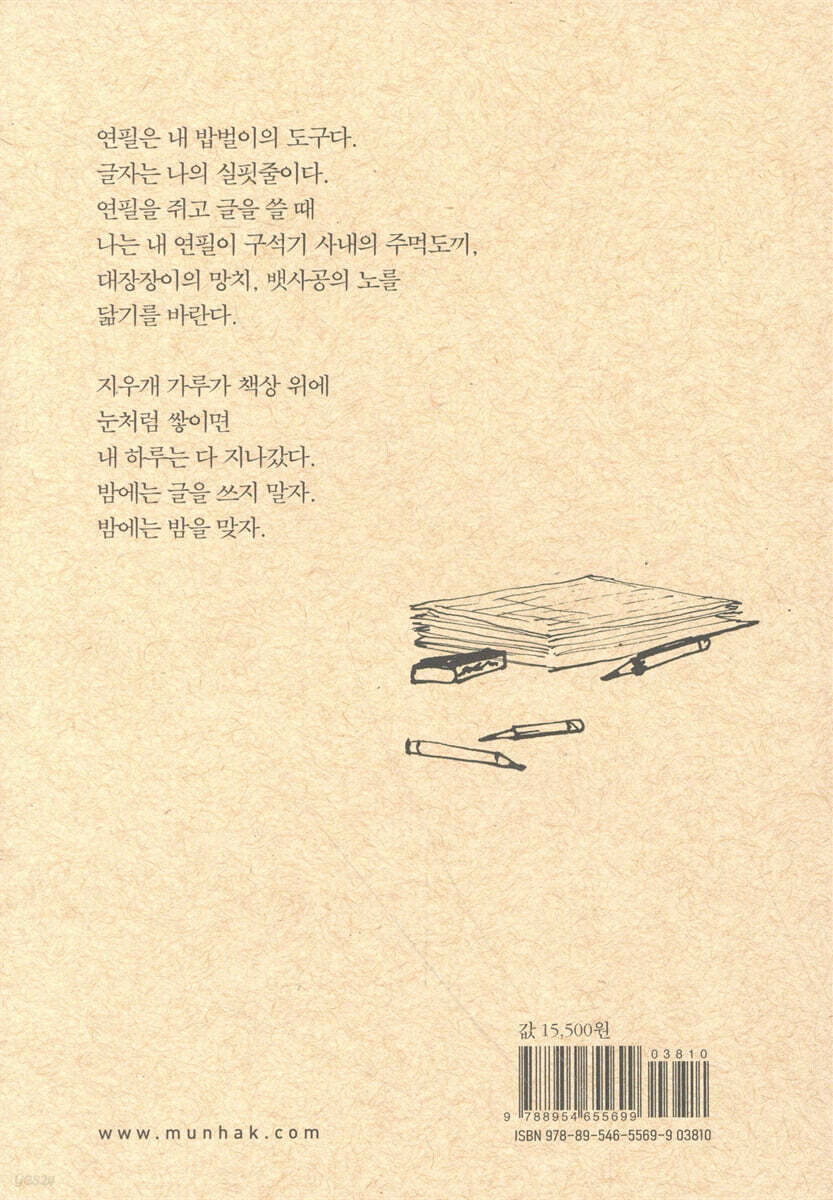 연필은 내 밥벌이의 도구다.
글자는 나의 실핏줄이다.
연필을 쥐고 글을 쓸 때
나는 내 연필이 구석기 사내의 주먹도끼,
대장장이의 망치, 뱃사공의 노를
닮기를 바란다.
지우개 가루가 책상 위에
눈처럼 쌓이면
내 하루는 다 지나갔다.
밤에는 글을 쓰지 말자.
밤에는 밤을 맞자.
값 15,500원
03810
9 788954 655699
www.munhak.com
ISBN 978-89-546-5569-9 03810